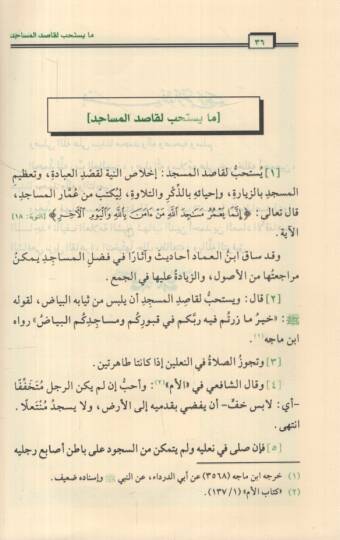 ما يستحب لقاصد المساجد
٣٦
[ما يستحب لقاصد المساجد]
[١] يُستحبُّ لقاصد المسجد: إخلاص النية لقَصْدِ العبادةِ، وتعظيمِ
المسجدِ بالزيارةِ، وإحيائهِ بالذِّكْرِ والتلاوةِ، ليُكتبَ من عُمَّار المساجدِ،
قال تعالى: ﴿إِنَّمَا يَعْمُرُ مَسَٰجِدَ ٱللَّهِ مَنْ ءَامَنَ بِٱللَّهِ وَٱلْيَوْمِ ٱلْآخِرِ﴾ [التوبة: ١٨]
الآية.
وقد ساق ابنُ العماد أحاديثَ وآثارًا في فضلِ المساجدِ يمكنُ
مراجعتُها من الأصول، والزيادةُ عليها في الجمع.
[٢] قال: ويستحبُّ لقاصِدِ المسجدِ أن يلبس من ثيابه البياضَ، لقوله
ﷺ: «خيرُ ما زرتُم فيه ربَّكم في قبورِكم ومساجدِكم البياضُ» رواه
ابن ماجه(١).
[٣] وتجوزُ الصلاةُ في النعلين إذا كانتا طاهرتين.
[٤] وقال الشافعي في «الأم»(٢): وأحبُّ إن لم يكن الرجل مُتَخَفِّفًا
-أي: لابس خفٍّ- أن يفضي بقدميه إلى الأرضِ، ولا يسجدُ مُنْتَعلًا.
انتهى.
[٥] فإن صلى في نعليه ولم يتمكن من السجود على باطن أصابع رجليه
(١) خرجه ابن ماجه (٣٥٦٨) عن أبي الدرداء، عن النبي ﷺ وإسناده ضعيف.
(٢) «كتاب الأم» (١/ ١٣٧).